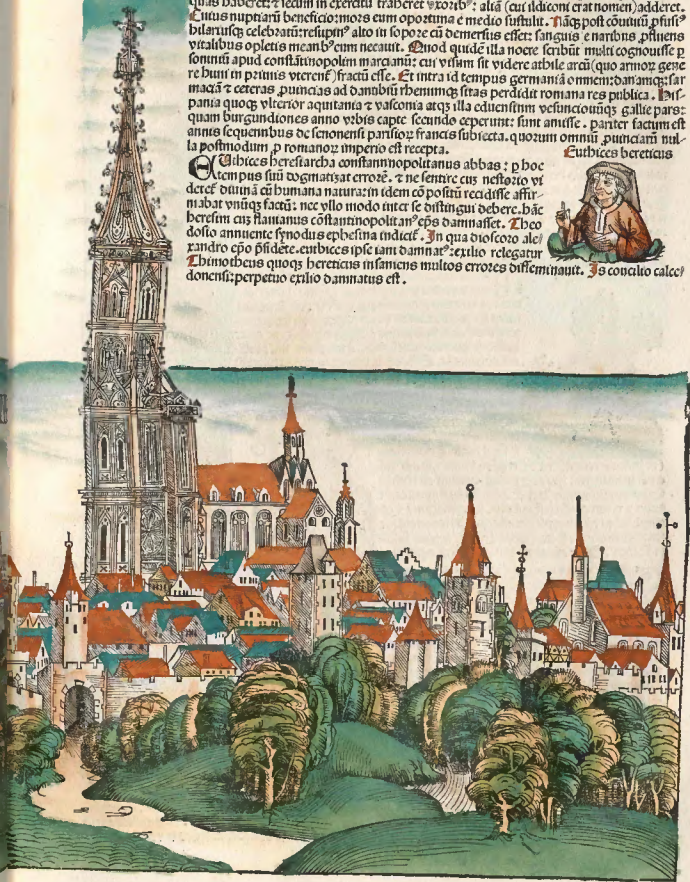 quas haberet: ⁊ secum in exercitu traheret vxorib⁹: aliā (cui ildiconi erat nomen) adderet.
nuptiarū beneficio: mors eum oportuna e medio sustulit. Nāq̄ post cōuiuiū ꝓfusis⁹
hilariusq̄ celebratū: resupin⁹ alto in sopore cū demersus esset: sanguis e naribus ꝓfluens
vitalibus opletis meatib⁹ eum necauit. Quod quidē illa nocte scribūt multi cognouisse ꝑ
somniū apud constātinopolim marcianū: cui visum sit videre athile arcū (quo armoꝝ gene
re huni in primis vterent̄) fractū esse. Et intra id tempus germaniā omnem: daniamq̄: sar
maciā ⁊ ceteras ꝓuincias ad danubiū rhenumq̄ sitas perdidit romana res publica. His-
pania quoq̄ vlterior aquitania ⁊ vasconia atq̄ illa eduensium vesuncionūq̄ gallie pars:
quam burgundiones anno vrbis capte secundo ceperunt: sunt amisse. pariter factum est
annis sequentibus vt senonensi parisioꝝ francis subiecta. quorum omniū ꝓuinciarū nul-
la postmodum ꝓ romanoꝝ imperio est recepta.
Euthices hereticus
Euthices heresiarcha constantinopolitanus abbas: ꝑ hoc
tempus suū dogmatizat errorē. ⁊ ne sentire cū nestorio vi
deret̄ diuinā cū humana natura: in idem cōpositū recidisse affir-
mabat vnūq̄ factū: nec vllo modo inter se distingui debere. hāc
heresim cū flauianus cōstantinopolitan⁹ ep̄s damnasset. Theo
dosio annuente synodus ephesina indicit̄. In qua dioscoro ale/
xandro ep̄o p̄sidēte. euthices ipse iam damnat⁹: exilio relegatur
Thimotheus quoq̄ hereticus insaniens multos errores disseminauit. Is concilio calce/
donensi: perpetuo exilio damnatus est.